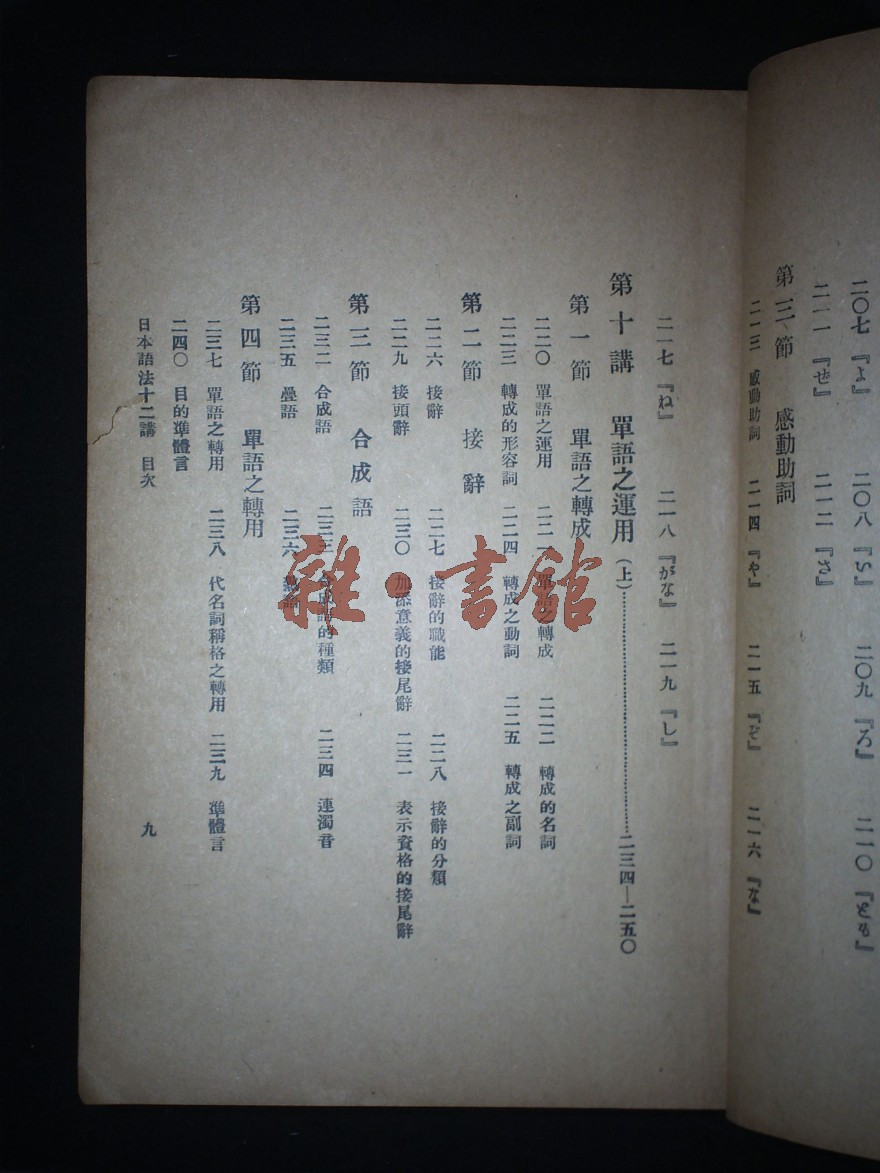 二〇七 『よ』 二〇八 『い』 二〇九 『ろ』 二一〇 『とも』
二一一 『せ』 二一二 『さ』
第三節 感動助詞
二一三 感動助詞 二一四 『や』 二一五 『ぞ』 二一六 『な』
二一七 『ね』 二一八 『がな』 二一九 『し』
第十講 單語之運用(上)…………二三四—二五〇
第一節 單語之轉成
二二〇 單語之運用 二二一 單語之轉成 二二二 轉成的名詞
二二三 轉成的形容詞 二二四 轉成之動詞 二二五 轉成之副詞
第二節 接辭
二二六 接辭 二二七 接辭的職能 二二八 接辭的分類
二二九 接頭辭 二三〇 加添意義的接尾辭 二三一 表示資格的接尾辭
第三節 合成語
二三二 合成語 二三三 合成語的種類 二三四 連濁音
二三五 疊語 二三六
第四節 單語之轉用
二三七 單語之轉用 二三八 代名詞稱格之轉用 二三九 準體言
二四〇 目的準體言
日本語法十二講 目次 九
雜·書館